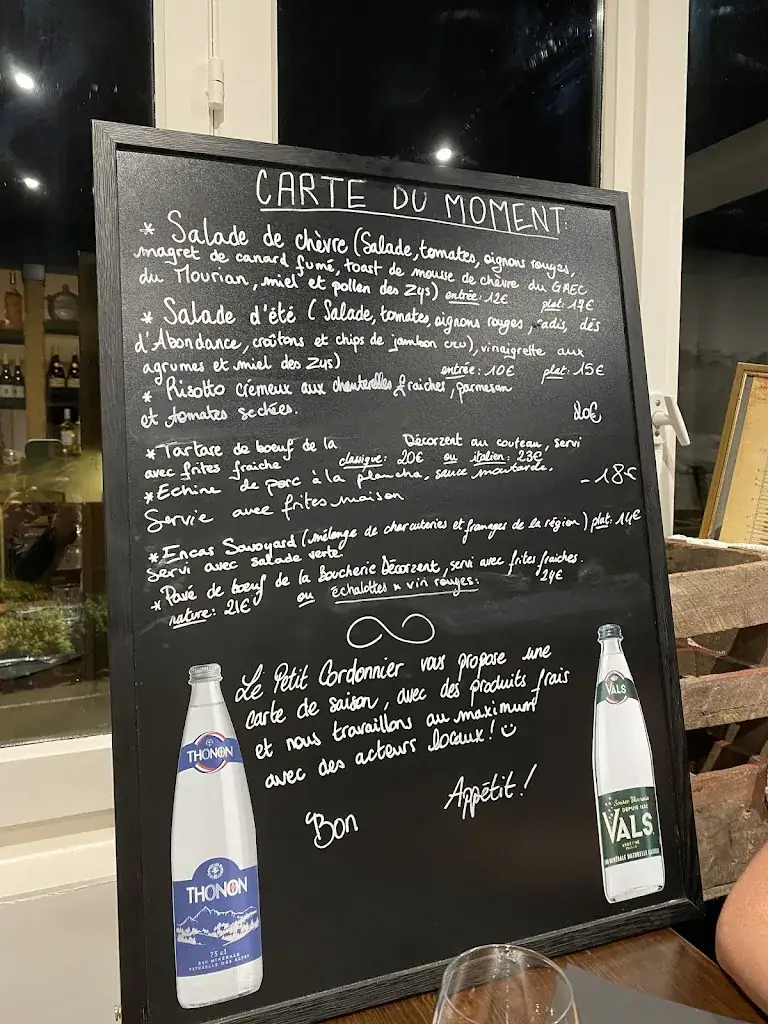 CARTE DU MOMENT:
* Salade de chèvre (Salade, tomates, oignons rouges,
magret de canard fumé, toast de mousse de chèvre du GAEC
du Mourian, miel et pollen des Zys) entrée: 12€ plat: 17€
* Salade d'été (Salade, tomates, oignons rouges, radis, dés
d'Abondance, croûtons et chips de jambon cru), vinaigrette aux
agrumes et miel des Zys) entrée: 10€ plat: 15€
* Risotto crémeux aux chanterelles fraiches, parmesan
et tomates sechées. 20€
* Tartare de boeuf de la Décorzent au couteau, servi
avec frites fraiche classique: 20€ ou italien: 23€
* Echine de porc à la plancha, sauce moutarde.
Servie avec frites maison - 18€
* Encas Savoyard (mélange de charcuteries et fromages de la région) plat: 14€
servi avec salade verte
* Pavé de boeuf de la Boucherie Décorzent, servi avec frites fraiches.
nature: 21€ ou échalottes x vin rouges: 24€
Le Petit Cordonnier vous propose une
carte de saison, avec des produits frais
et nous travaillons au maximum
avec des acteurs locaux!
Bon Appétit!
THONON
THONON
75 cl
EAU MINÉRALE
NATURELLE DES ALPES
VALS
DEPUIS 1602
VALS